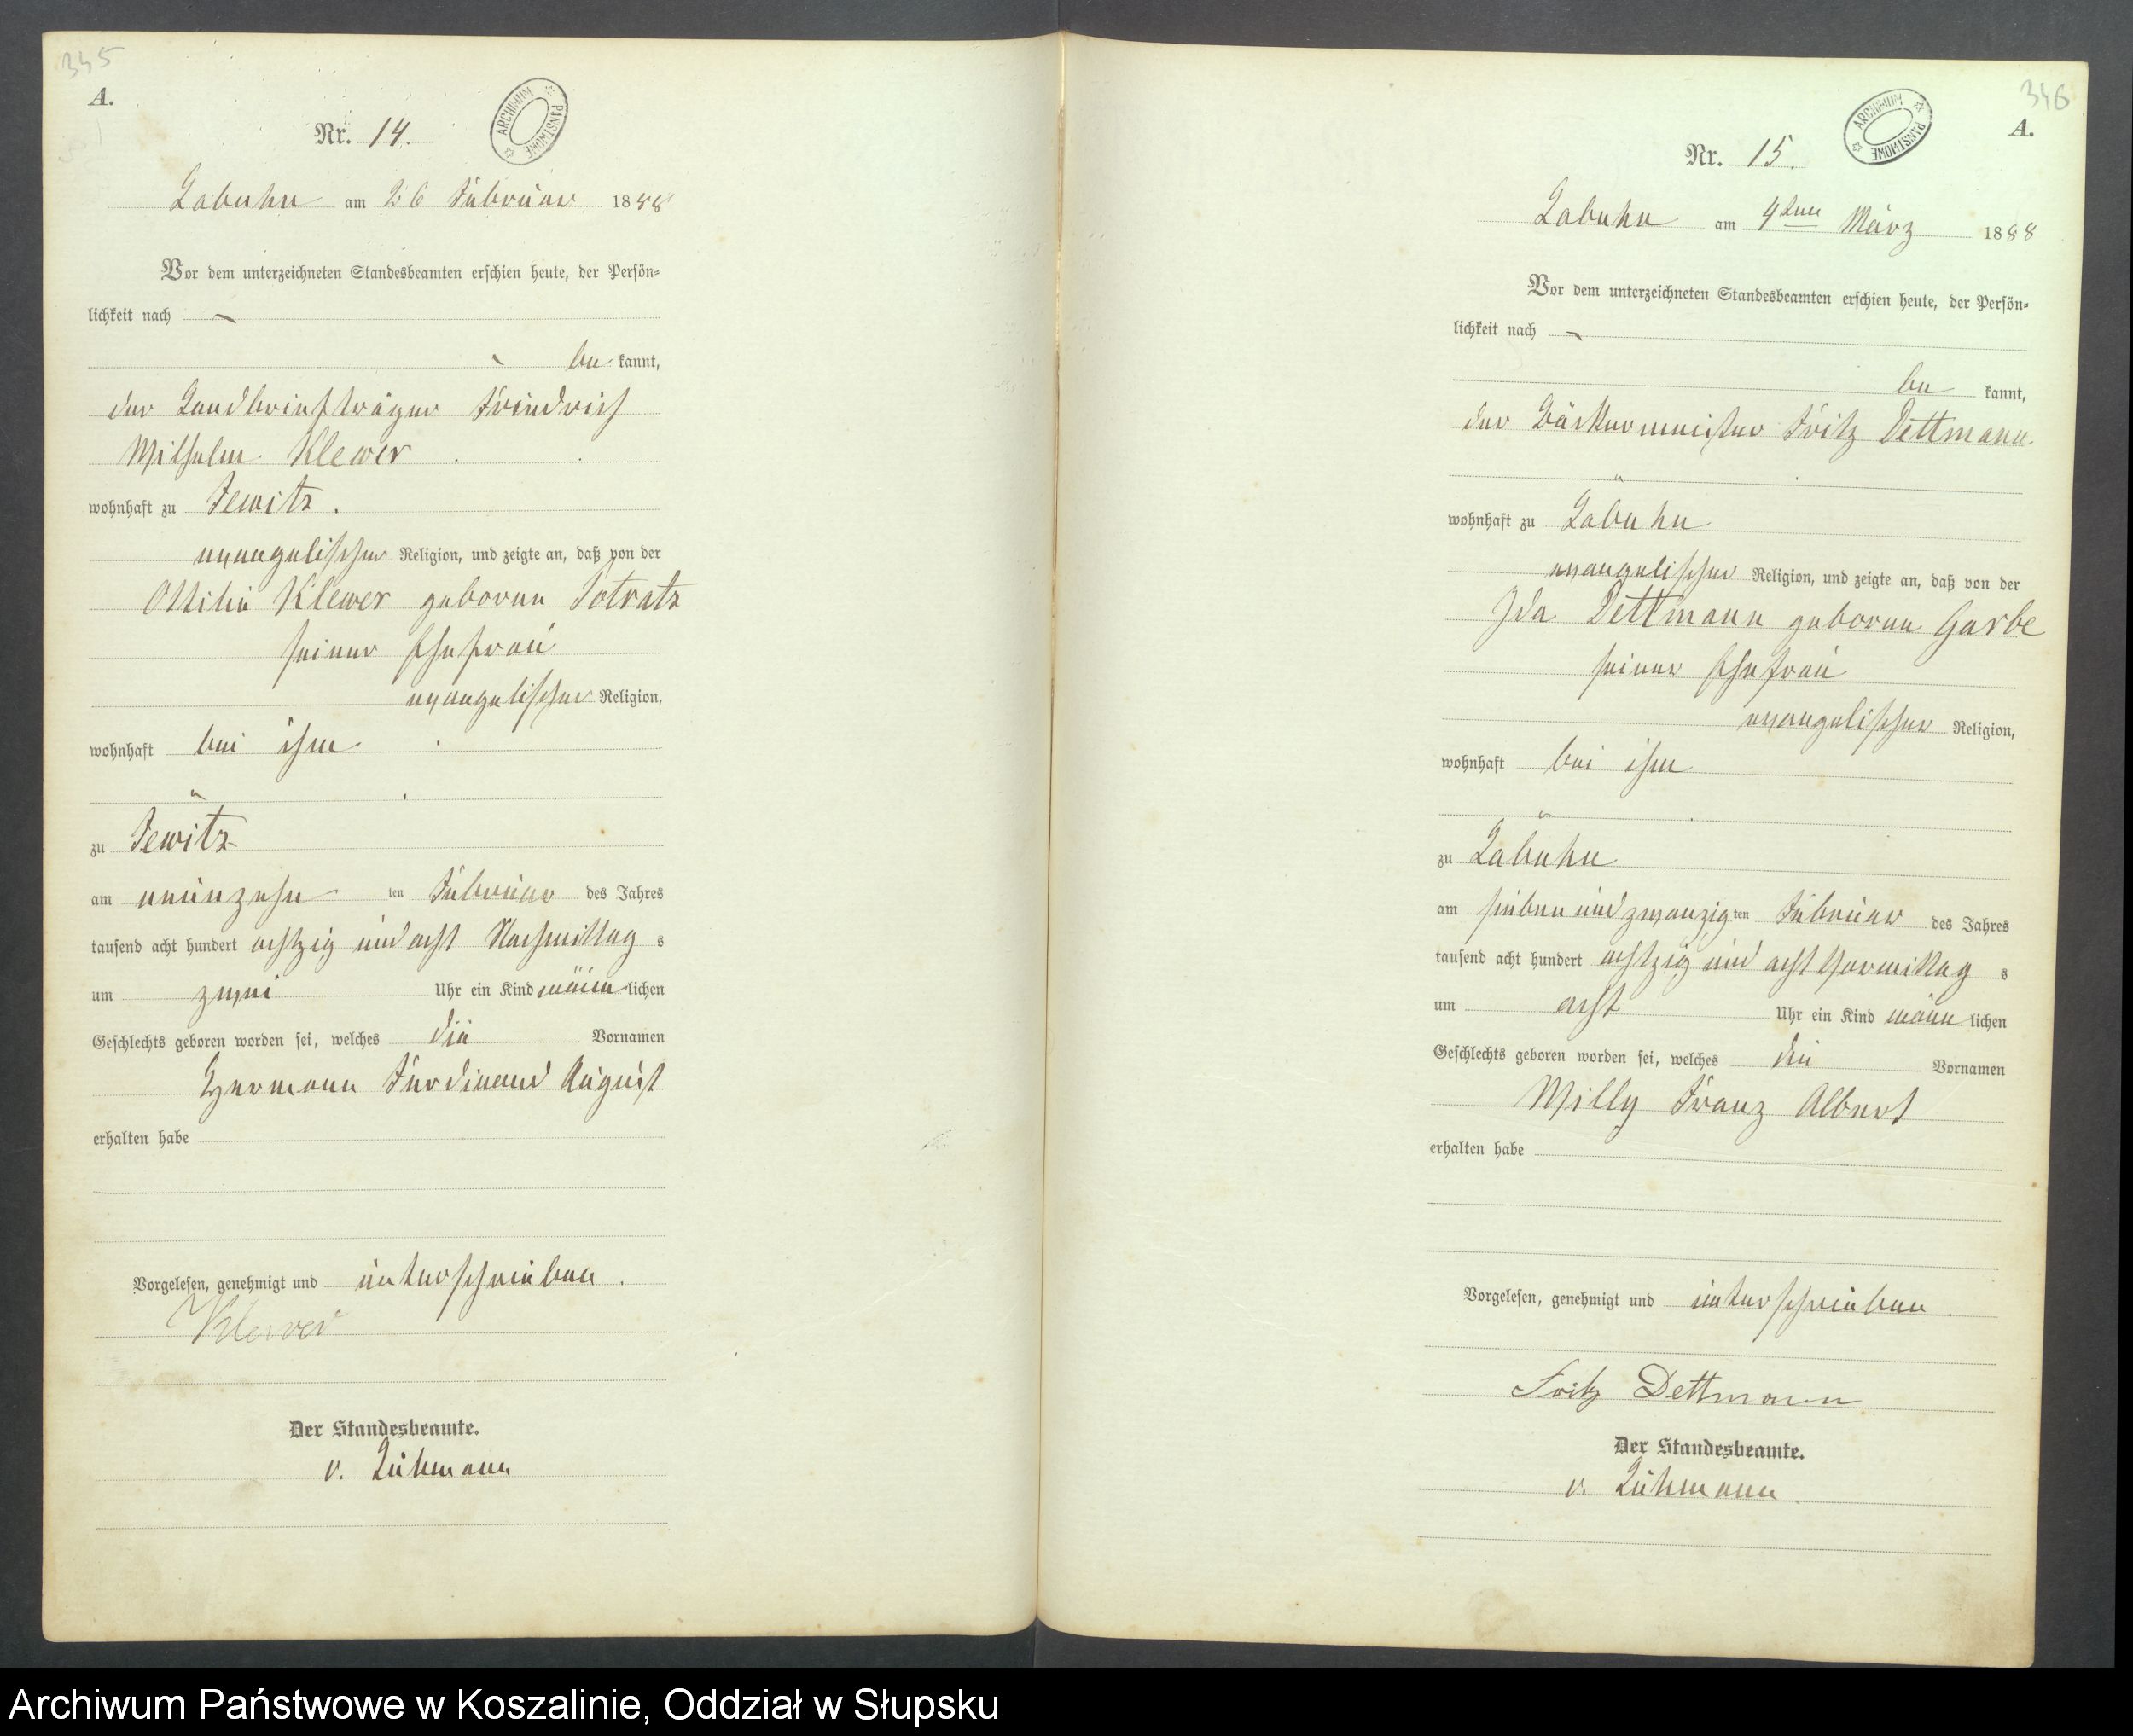 345
A.
ARCHIWUM PAŃSTWOWE
Nr. 14.
Labuhn am 26 Februar 1888
Vor dem unterzeichneten Standesbeamten erschien heute, der Persön-
lichkeit nach
be kannt,
der Landbriefträger Friedrich
Wilhelm Klewer
wohnhaft zu Jewitz.
evangelischer Religion, und zeigte an, daß von der
Ottilie Klewer geborene Potratz
seiner Ehefrau
evangelischer Religion,
wohnhaft bei ihm
zu Jewitz
am neunzehn ten Februar des Jahres
tausend acht hundert achtzig und acht Nachmittag s
um zwei Uhr ein Kind männ lichen
Geschlechts geboren worden sei, welches die Vornamen
Hermann Ferdinand August
erhalten habe
Vorgelesen, genehmigt und unterschrieben.
Klewer
Der Standesbeamte.
v.
346
A.
ARCHIWUM PAŃSTWOWE
Nr. 15.
Labuhn am 4ten März 1888
Vor dem unterzeichneten Standesbeamten erschien heute, der Persön-
lichkeit nach
be kannt,
der Bäckermeister Fritz Dettmann
wohnhaft zu Labuhn
evangelischer Religion, und zeigte an, daß von der
Ida Dettmann geborene Garbe
seiner Ehefrau
evangelischer Religion,
wohnhaft bei ihm
zu Labuhn
am siebenundzwanzig ten Februar des Jahres
tausend acht hundert achtzig und acht Vormittag s
um acht Uhr ein Kind männ lichen
Geschlechts geboren worden sei, welches die Vornamen
Willy Franz Albert
erhalten habe
Vorgelesen, genehmigt und unterschrieben.
Fritz Dettmann
Der Standesbeamte.
v.
Archiwum Państwowe w Koszalinie, Oddział w Słupsku